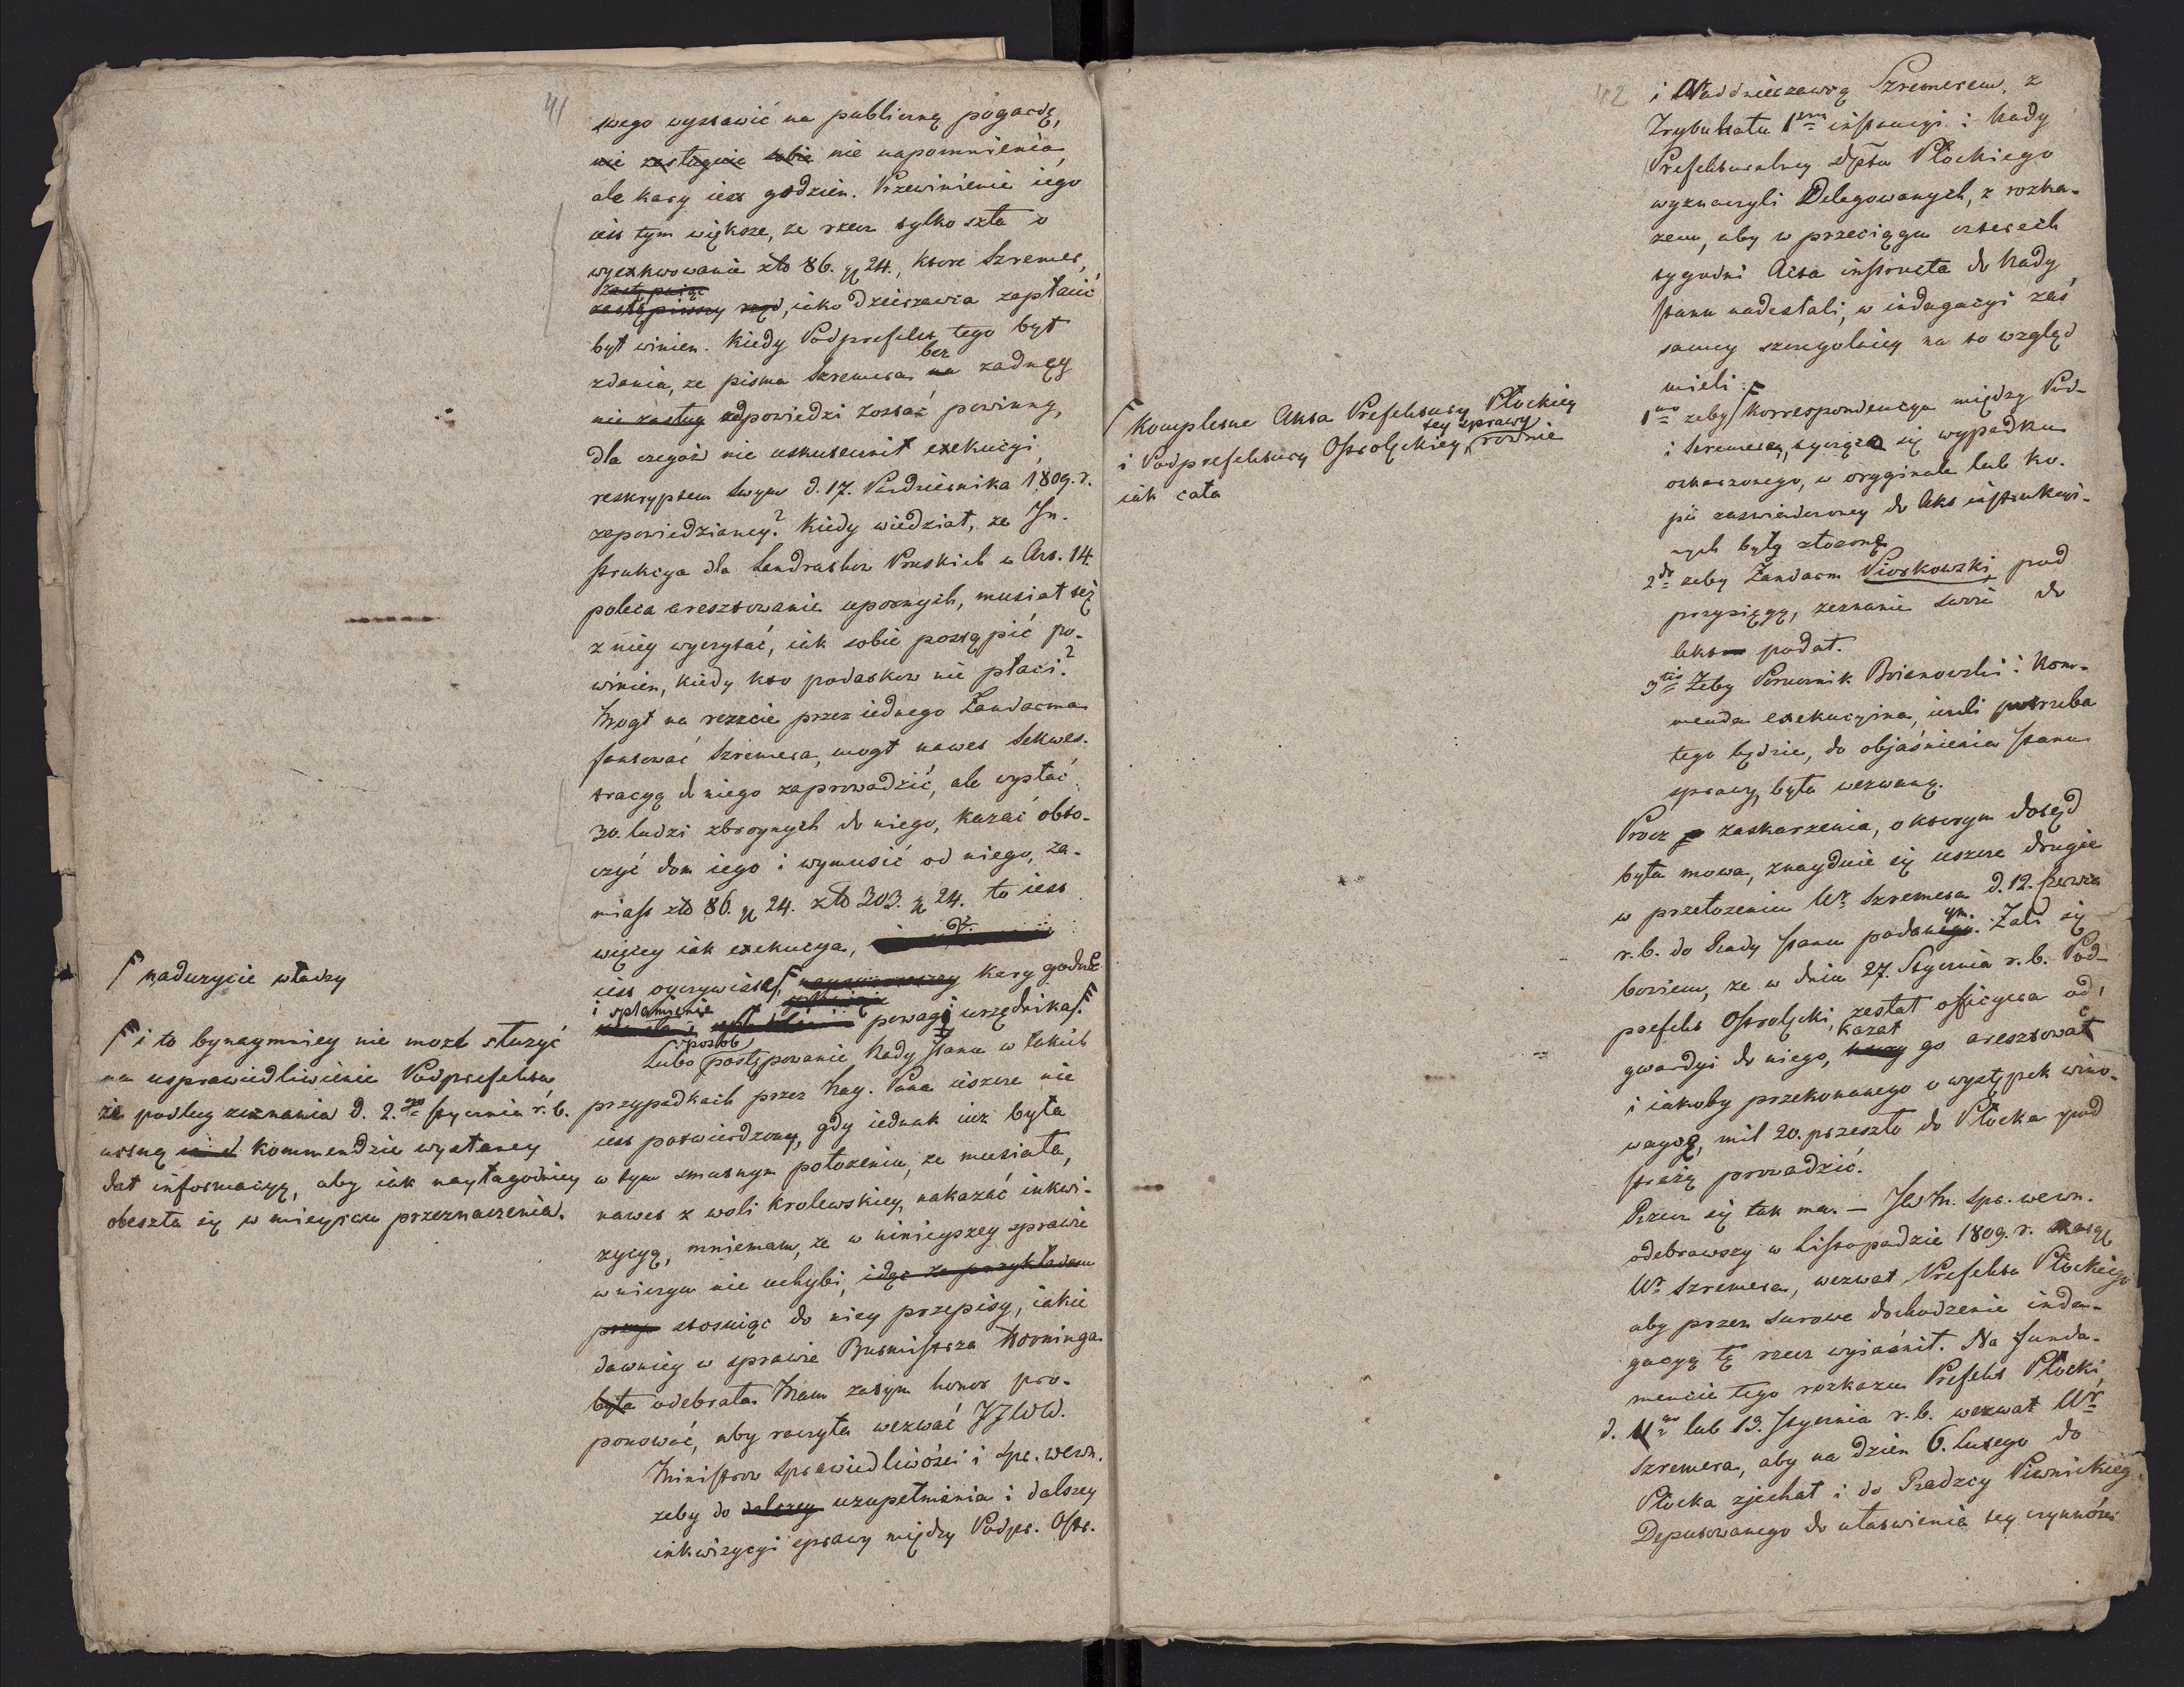 41
swego wystawić na publiczną pogardę,
nie zasługuie sobie nie napomnienia,
ale kary iest godzien. Przewinienie iego
iest tym większe, że rzecz tylko szła o
wyexekwowanie złt 86. gr 24., które Szremer,
zastępuiąc
iako dzierzawca zapłacić
był winien. Kiedy Podprefekt tego był
zdania, że pisma Szremera bez na żadney
nie zasługi odpowiedzi zostać powinny,
dla czegóż nie uskutecznił exekucyi
reskryptem swym d. 17. Pazdziernika 1809. r.
zapowiedzianey? Kiedy wiedział, że In-
strukcya dla Landrathow Pruskich w Art. 14.
poleca aresztowanie upornych, musiał też
z niey wyczytać, iak sobie postąpić po-
winien, kiedy kto podatkow nie płaci?
Mogł na reszcie przez iednego Żandarma
fantować Szremera, mogł nawet Sekwes-
tracyą do niego zaprowadzić, ale wysłać
30. ludzi zbroynych do niego, kazać oto-
czyć dom iego i wymusić od niego, za-
miast złt 86. gr 24. złt 303. gr 24. to iest
więcey iak exekucya,
iest oczywiste kary godne
i splamienie powagi urzędnika
Lubo sposób postępowania Rady Stanu w takich
przypadkach przez Nay. Pana ieszcze nie
iest potwierdzony, gdy iednak iuż była
w tym smutnym położeniu, że musiała,
nawet z woli Krolewskiey, nakazać inkwi-
zycyą, mniemam, że w ninieyszey sprawie
w niczym nie uchybi, idąc za przykładem
przep stosuiąc do niey przepisy, iakie
dawniey w sprawie Burmistrza Horninga
była odebrała. Mam zatym honor pro-
ponować, aby raczyła wezwać JJWW.
Ministrow Sprawiedliwości i Spr. wewn.
żeby do dalszey uzupełnienia i dalszey
inkwizycyi sprawy między Podpr. Ostr.
nadużycie władzy
i to bynaymniey nie może służyć
na usprawiedliwienie Podprefekta,
że podług zeznania d. 2.go stycznia r. b.
ustną kommendzie wysłaney
dał informacyą, aby iak nayłagodniey
obeszła się w mieyscu przeznaczenia.
42
i Naddzierzawcą Szremerem, z
Trybunału 1szey instancyi i Rady
Prefekturalney Dptu Płockiego
wyznaczyli Delegowanych, z rozka-
zem, aby w przeciągu czterech
tygodni Acta instructa do Rady
Stanu nadesłali, w indagacyi zaś
samey szczególniey na to wzgląd
mieli:
1mo żeby Korrespondencya między Pod-
i Szremerem, tycząca się wypadku
oznaczonego, w oryginale lub ko-
pii zaswiadczoney do Akt instrukcyi-
nych były złożone
2do żeby Żandarm Piorkowski pod
przysięgą, zeznanie swoie do
Akt podał.
3tio Żeby Porucznik Boianowski i Kom-
menda exekucyina, ieśli potrzeba
tego będzie, do objaśnienia stanu
sprawy, była wezwaną.
Procz zaskarzenia, o ktorym dotąd
była mowa, znayduie się ieszcze drugie
w przełożeniu Wo Szremera d. 12. Czerwca
r. b. do Rady Stanu podanym. Żali się
bowiem, że w dniu 27. Stycznia r. b. Pod-
prefekt Ostrołęcki, zesłał oficyera od
gwardyi do niego, kazał go aresztować
i iakoby przekonanego o występek wino-
waycę, mil 20. przeszło do Płocka pod
strażą prowadzić.
Rzecz się tak ma. — JW Mr. Spr. wewn.
odebrawszy w Listopadzie 1809. r. skargę
Wo Szremera, wezwał Prefekta Płockiego
aby przez surowe dochodzenie inda-
gacyą tę rzecz wyiaśnił. Na funda-
mencie tego rozkazu Prefekt Płocki,
d. 11go lub 13. stycznia r. b. wezwał Wo
Szremera, aby na dzien 6. Lutego do
Płocka zjechał i do Radzcy Piwnickiego
Deputowanego do ułatwienia tey czynności
Kompletne Akta Prefektury Płockiey
i Podprefektury Ostrołęckiey tey sprawy rownie
iak cała